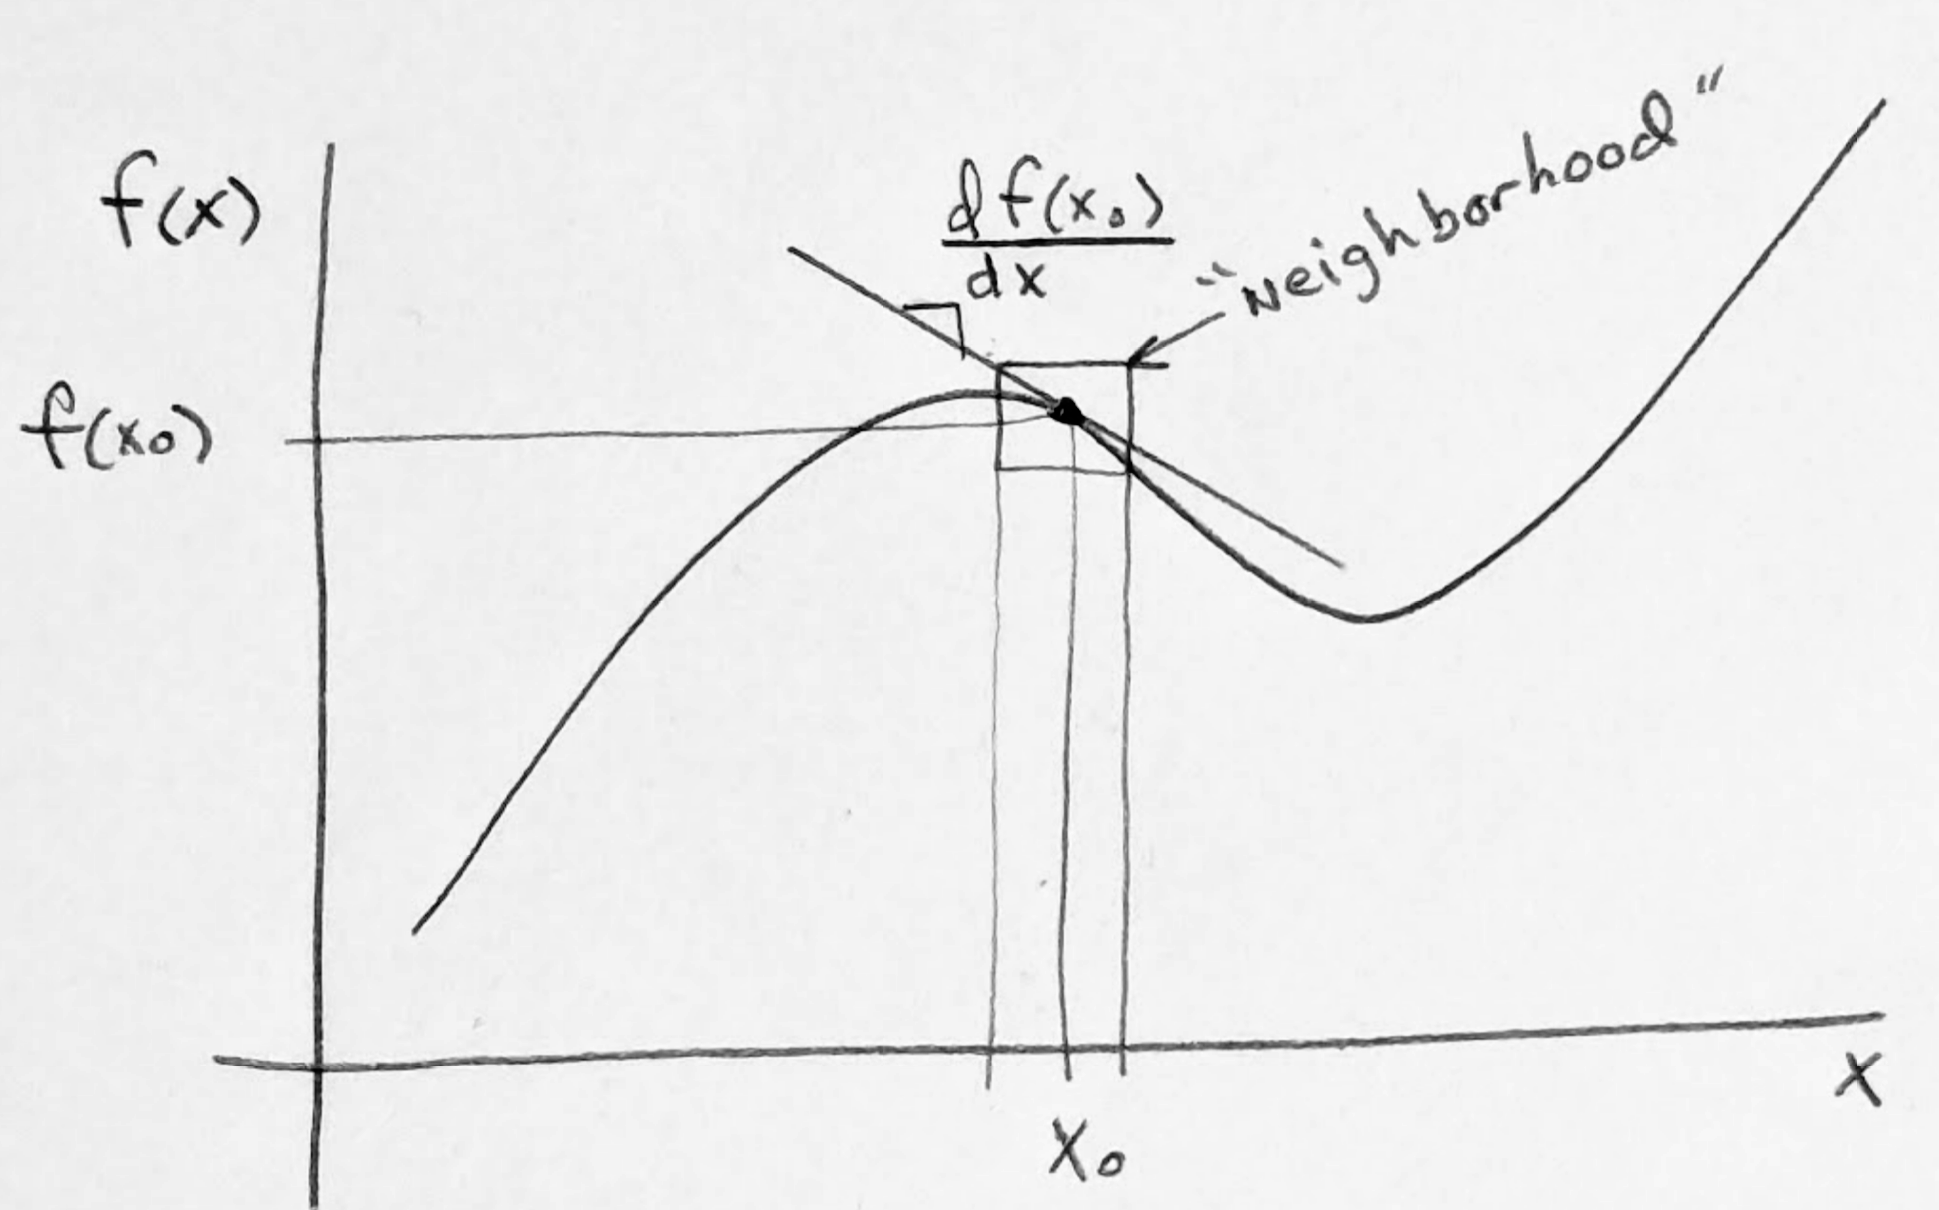 f(x)
df(x₀)
dx
"Neighborhood"
f(x₀)
x₀
x